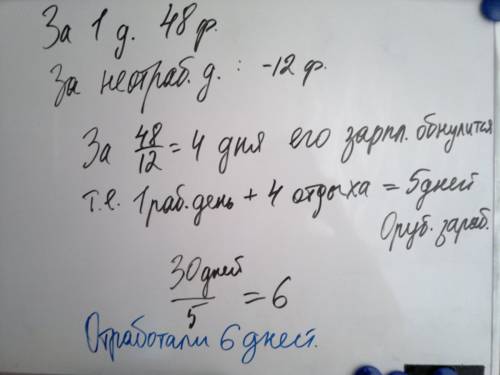 За 1 д. 48 р.
За неотраб. д. : -12 р.
За 48/12 = 4 дня его зарпл. обнулится
т.е. 1 раб. день + 4 отдыха = 5 дней
0 руб. зараб.
30 дней / 5 = 6
Отработали 6 дней.